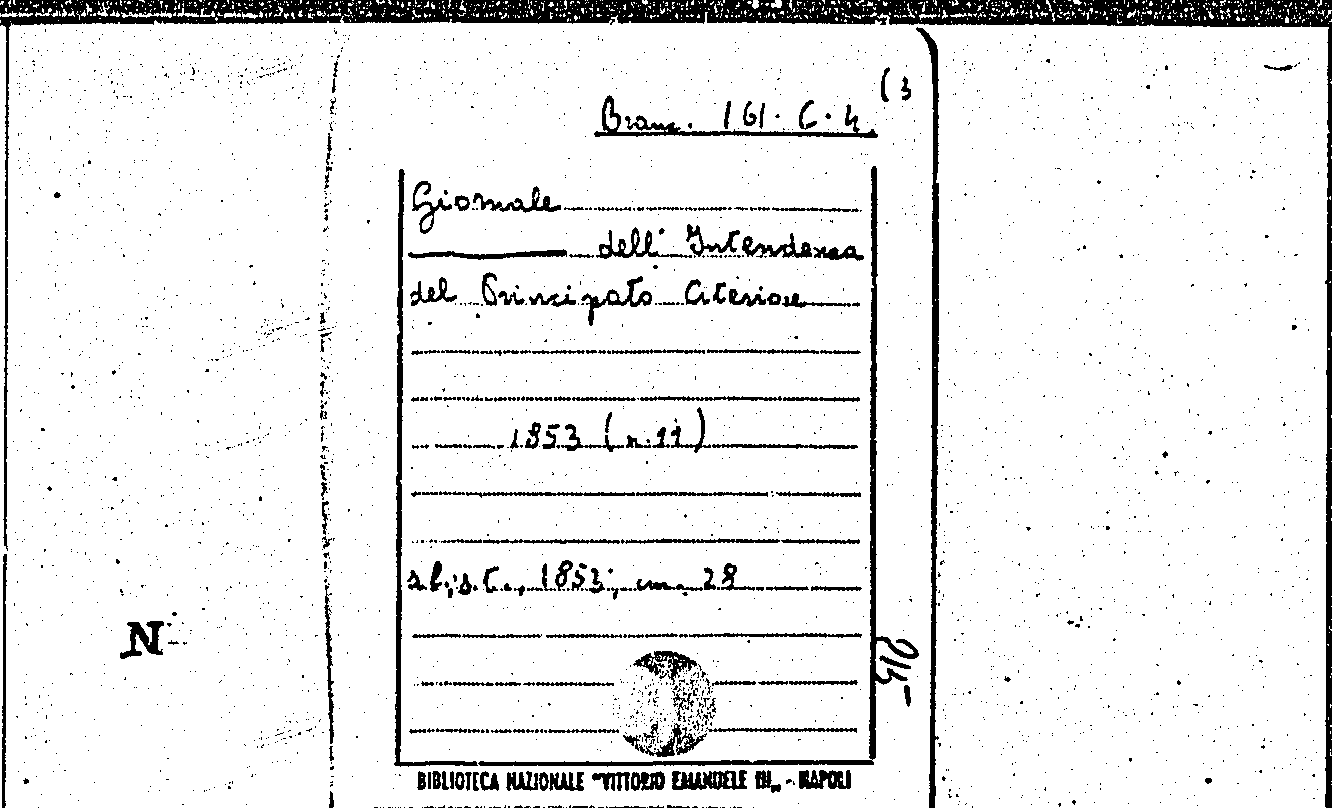 (3
Branc. 161. C. 4.
Giornale
dell' Intendenza
del Principato Citeriore
1853 (n. 11)
s.l.; s.t., 1853; cm. 28
N
BIBLIOTECA NAZIONALE "VITTORIO EMANUELE III„ - NAPOLI